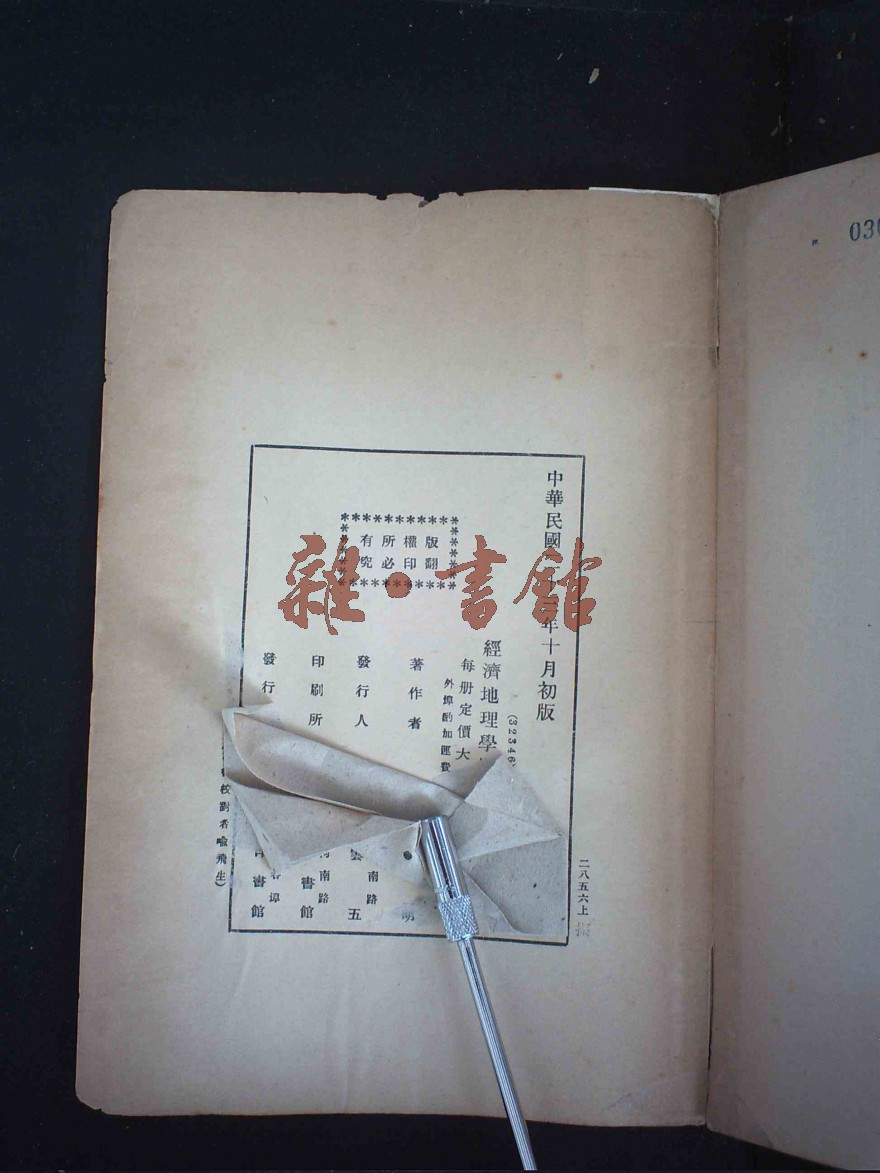 中華民國 十三年十月初版
(32346)
經濟地理學
每册定價大
外埠酌加運費
版權所有
翻印必究
著作者
發行人
南路
五
印刷所
南路
書館
發行
埠
書館
校對者喻飛生)
二八五六上
雜·書館
030